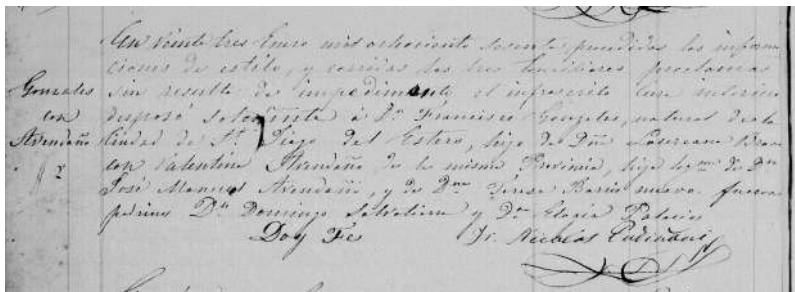 En veinte tres Enero mil ochociento sesenta precedidas las informa
ciones de estilo, y corridas las tres conciliares proclamas
Gonzales sin resulta de impedimento el infrascrito Cura interino
con desposó solemnte á Dn Francisco Gonzales, natural de la
Avendaño Ciudad de St Diego del Estero, hijo de Dña Laureana Bravo
con Valentina Avendaño de la misma Provincia, hija legma de Dn
José Manuel Avendaño, y de Dna Teresa Barrio nuevo. fueron
padrinos Dn Domingo Salvatierra y Da Elogia Palacio
Doy Fe Fr. Nicolas